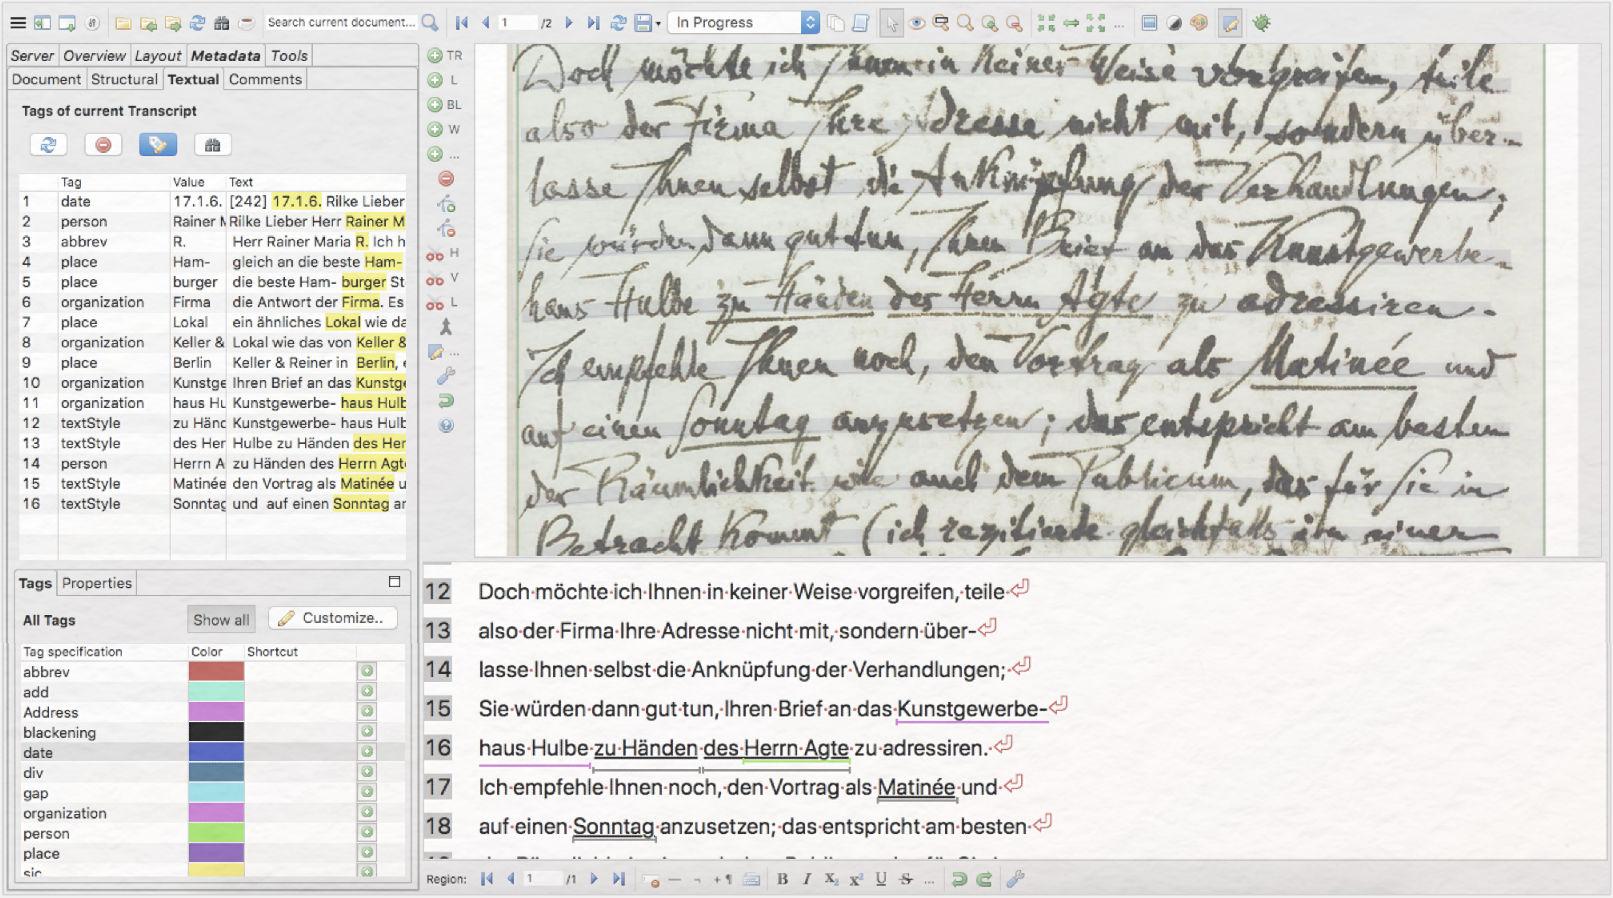 Search current document...
1 /2
In Progress
Server Overview Layout Metadata Tools
Document Structural Textual Comments
Tags of current Transcript
Tag Value Text
1 date 17.1.6. [242] 17.1.6. Rilke Lieber
2 person Rainer M Rilke Lieber Herr Rainer M
3 abbrev R. Herr Rainer Maria R. Ich h
4 place Ham- gleich an die beste Ham-
5 place burger die beste Ham- burger St
6 organization Firma die Antwort der Firma. Es
7 place Lokal ein ähnliches Lokal wie da
8 organization Keller & Lokal wie das von Keller &
9 place Berlin Keller & Reiner in Berlin, e
10 organization Kunstge Ihren Brief an das Kunstge
11 organization haus Hu Kunstgewerbe- haus Hulb
12 textStyle zu Händ Kunstgewerbe- haus Hulb
13 textStyle des Her Hulbe zu Händen des Her
14 person Herrn A zu Händen des Herrn Agte
15 textStyle Matinée den Vortrag als Matinée u
16 textStyle Sonntag und auf einen Sonntag an
Tags Properties
All Tags Show all Customize..
Tag specification Color Shortcut
abbrev
add
Address
blackening
date
div
gap
organization
person
place
sic
TR
L
BL
W
...
H
V
L
...
Doch möchte ich Ihnen in keiner Weise vorgreifen, teile
also der Firma Ihre Adresse nicht mit, sondern über-
lasse Ihnen selbst die Anknüpfung der Verhandlungen;
Sie würden dann gut tun, Ihren Brief an das Kunstgewerbe-
haus Hulbe zu Händen des Herrn Agte zu adressiren.
Ich empfehle Ihnen noch, den Vortrag als Matinée und
auf einen Sonntag anzusetzen; das entspricht am besten
der Räumlichkeit wie auch dem Publicum, das für Sie in
Betracht kommt (ich rezitirte gleichfalls in einer
12 Doch möchte ich Ihnen in keiner Weise vorgreifen, teile
13 also der Firma Ihre Adresse nicht mit, sondern über-
14 lasse Ihnen selbst die Anknüpfung der Verhandlungen;
15 Sie würden dann gut tun, Ihren Brief an das Kunstgewerbe-
16 haus Hulbe zu Händen des Herrn Agte zu adressiren.
17 Ich empfehle Ihnen noch, den Vortrag als Matinée und
18 auf einen Sonntag anzusetzen; das entspricht am besten
Region: 1 /1 B I X₂ x² U S ...